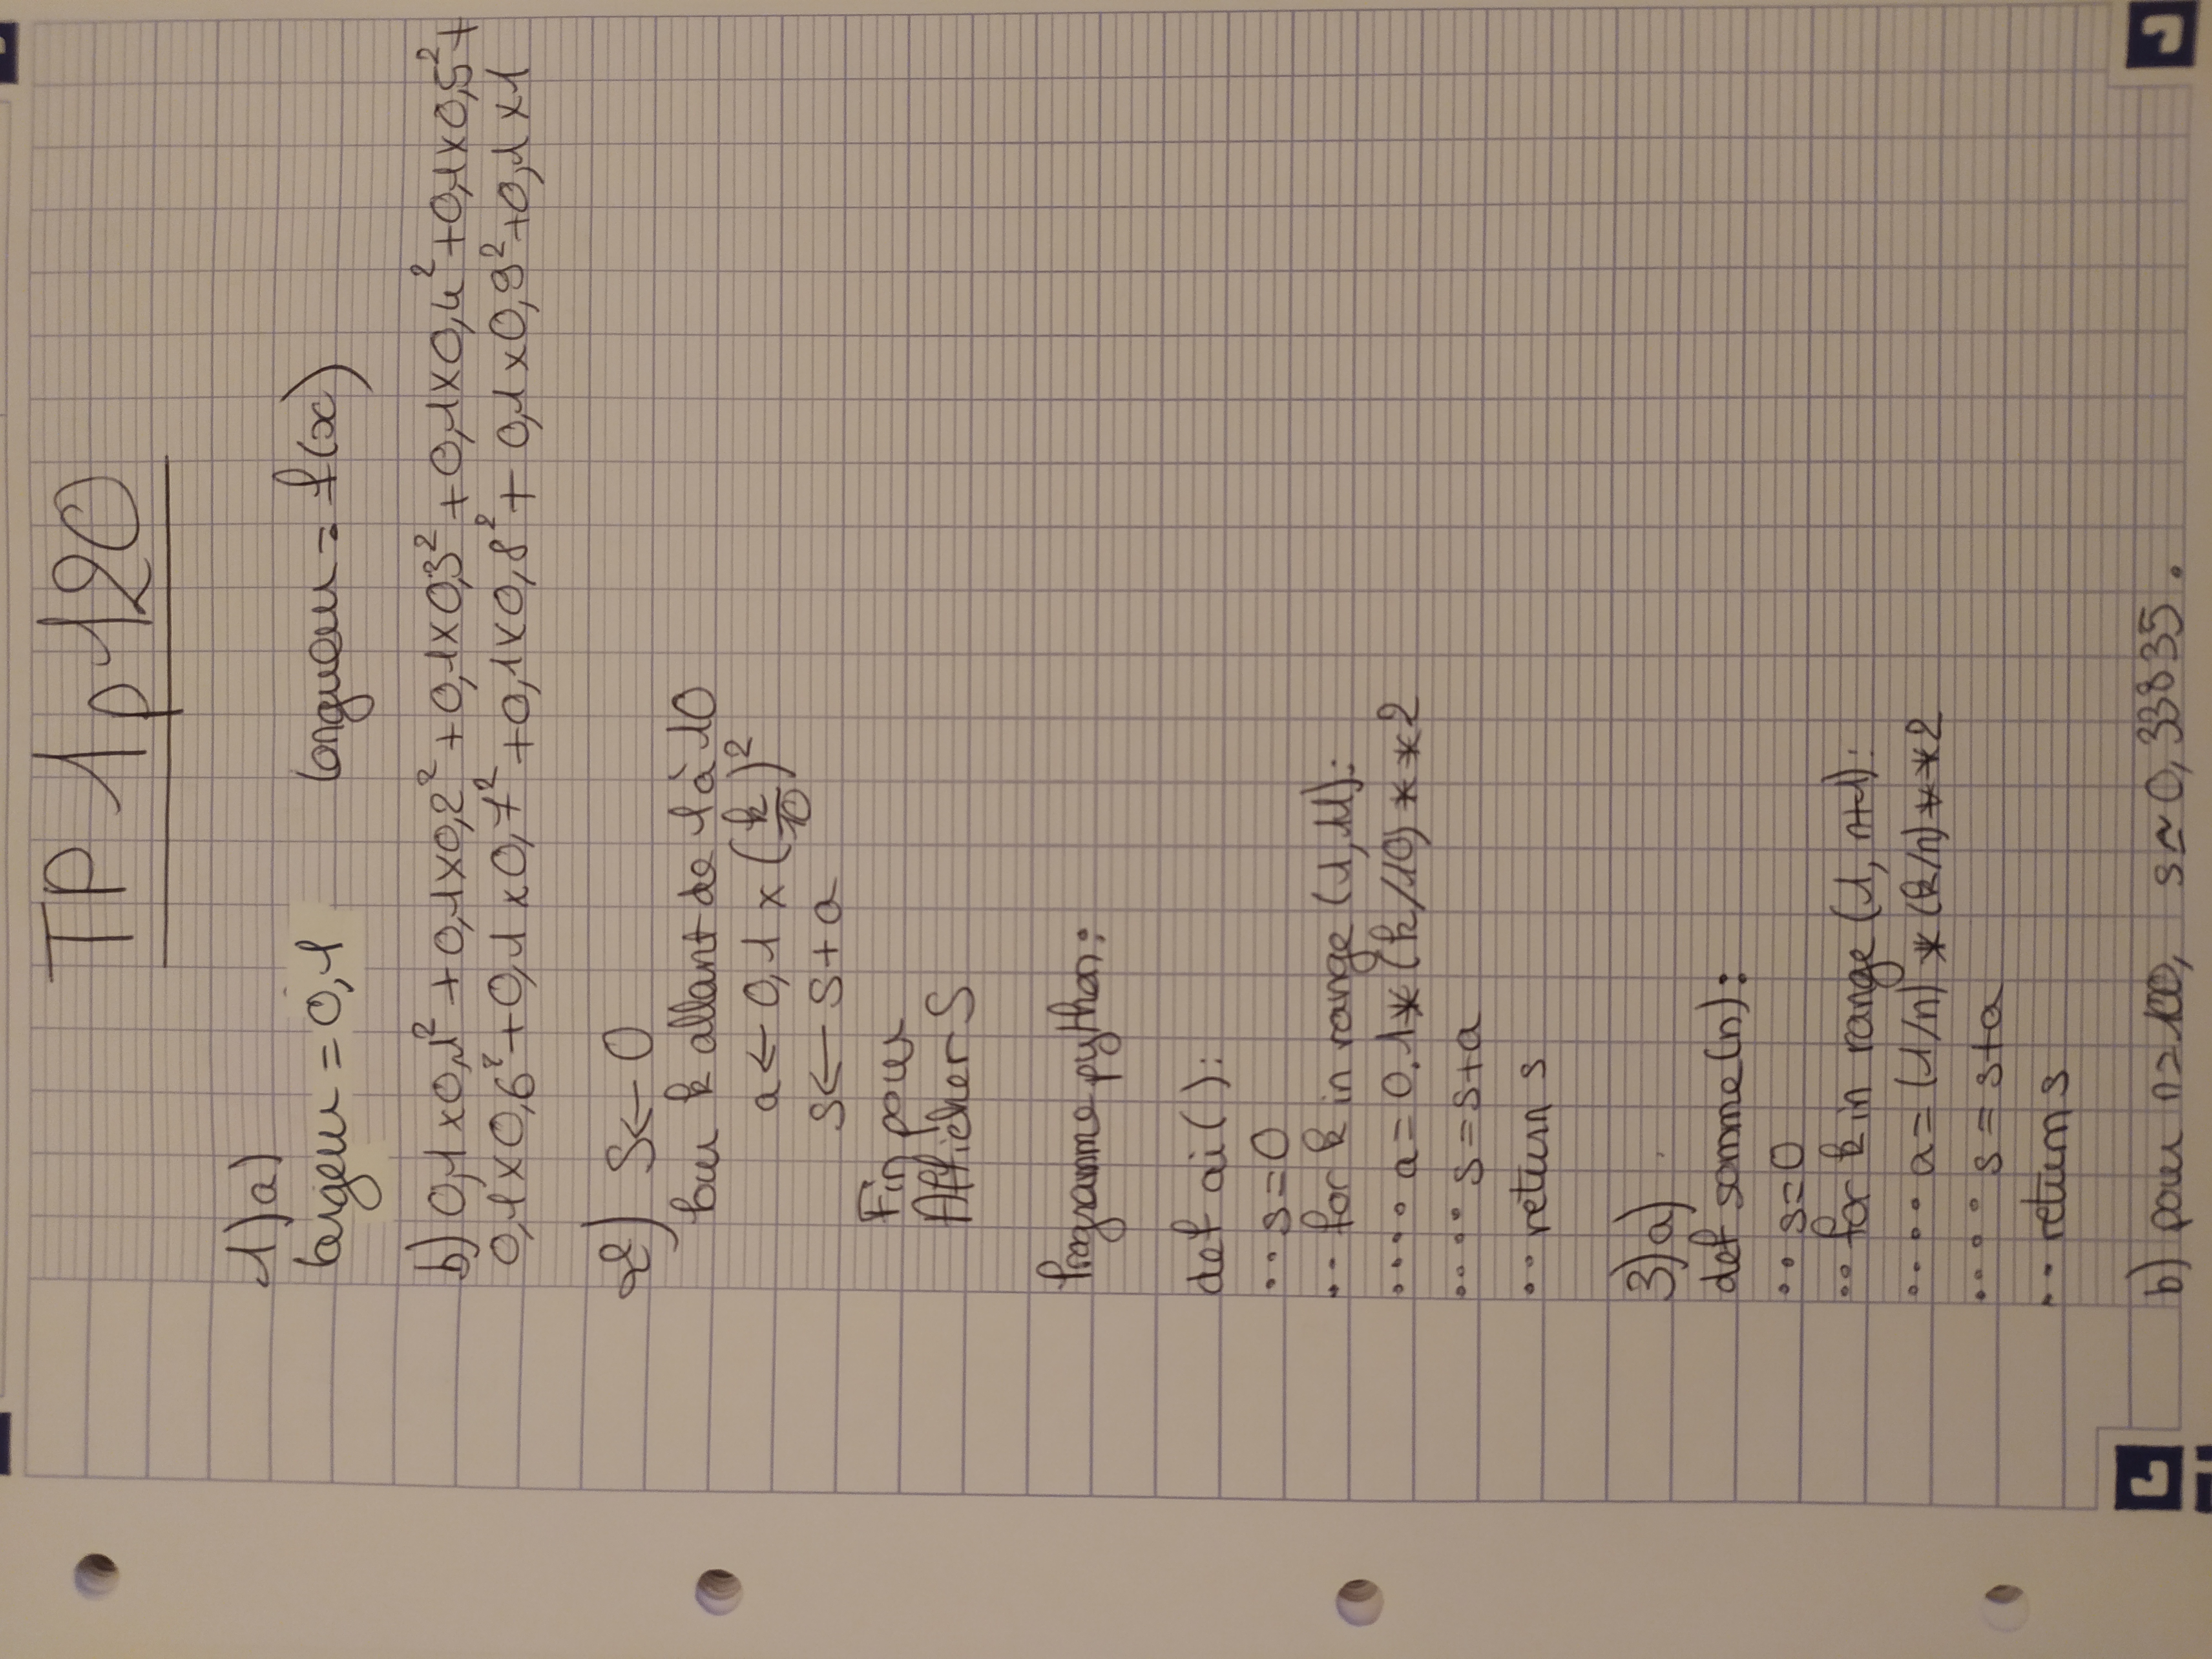 TP 1 p120
1)a)
largeur = 0,1 longueur = f(x)
b) 0,1 x 0,1² + 0,1 x 0,2² + 0,1 x 0,3² + 0,1 x 0,4² + 0,1 x 0,5² +
0,1 x 0,6² + 0,1 x 0,7² + 0,1 x 0,8² + 0,1 x 0,9² + 0,1 x 1
2) S ← 0
Pour k allant de 1 à 10
a ← 0,1 x (k/10)²
S ← S + a
Fin pour
Afficher S
Programme python :
def ai( ):
... s=0
... for k in range (1,11):
..... a = 0.1*(k/10)**2
..... s = s+a
... return s
3)a)
def somme(n):
... s=0
... for k in range (1, n+1):
..... a = (1/n)*(k/n)**2
..... s = s+a
... return s
b) pour n=100, s ≃ 0,33835.